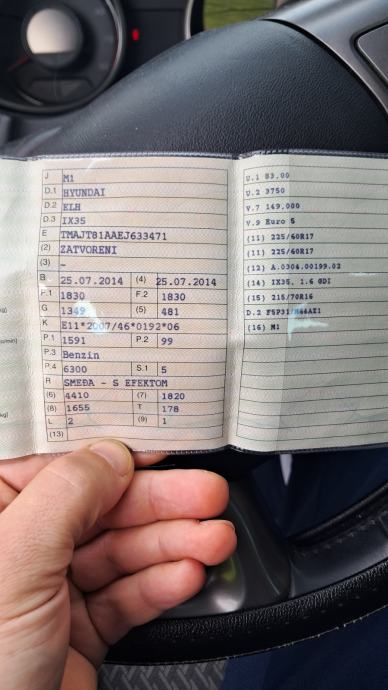 J M1
D.1 HYUNDAI
D.2 ELH
D.3 IX35
E TMAJT81AAEJ633471
(2) ZATVORENI
(3) -
B 25.07.2014 (4) 25.07.2014
F.1 1830 F.2 1830
G 1349 (5) 481
K E11*2007/46*0192*06
P.1 1591 P.2 99
P.3 Benzin
P.4 6300 S.1 5
R SMEĐA - S EFEKTOM
(6) 4410 (7) 1820
(8) 1655 T 178
L 2 (9) 1
(13)
U.1 83,00
U.2 3750
V.7 149,000
V.9 Euro 5
(11) 225/60R17
(11) 225/60R17
(12) A.0304.00199.02
(14) IX35, 1.6 GDI
(15) 215/70R16
D.2 F5P31/M66AZ1
(16) M1